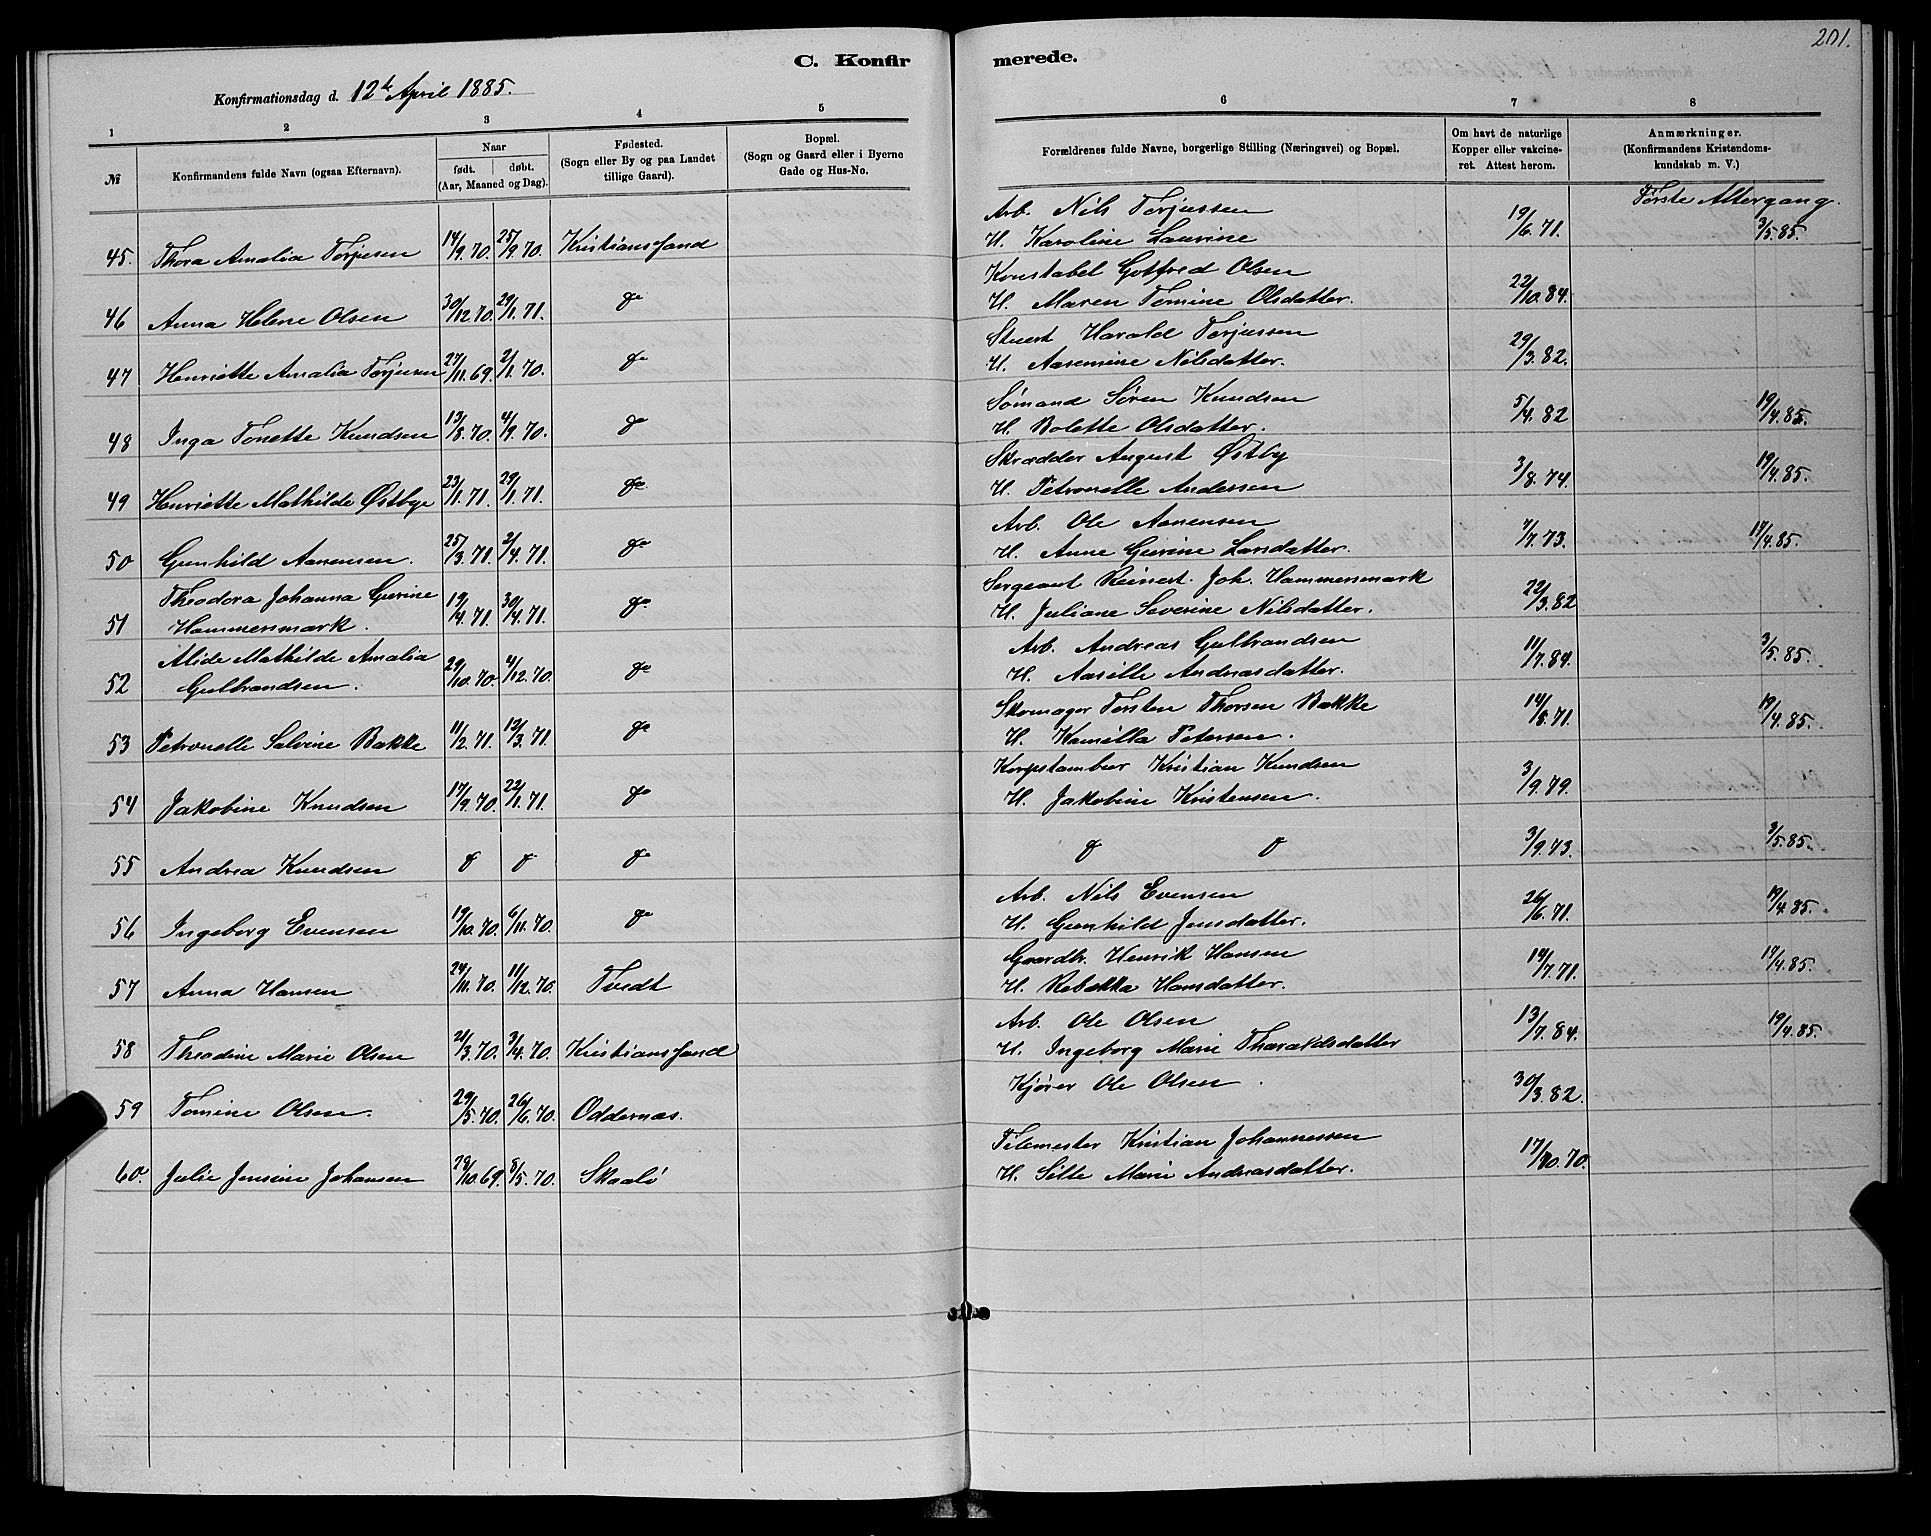 201.
C. Konfir merede.
Konfirmationsdag d. 12te April 1885.
1 2 3 4 5 6 7 8
№
Konfirmandens fulde Navn (ogsaa Efternavn).
Naar
født. døbt.
(Aar, Maaned og Dag).
Fødested.
(Sogn eller By og paa Landet
tillige Gaard).
Bopæl.
(Sogn og Gaard eller i Byerne
Gade og Hus-No.
Forældrenes fulde Navne, borgerlige Stilling (Næringsvei) og Bopæl.
Om havt de naturlige
Kopper eller vakcine-
ret. Attest herom.
Anmærkninger.
(Konfirmandens Kristendoms-
kundskab m. V.)
Første Altergang.
Arb. Nils Terjussen
45. Thora Amalia Terjesen 14/9.70. 25/9.70. Kristianssand H. Karoline Laurine 19/6.71. 3/5.85.
Konstabel Gotfred Olsen
46 Anna Helene Olsen 30/12.70. 29/1.71. do H. Maren Tomine Olsdatter. 22/10.84.
Stuert Harald Terjussen
47 Henriette Amalia Terjusen 27/11.69. 2/1.70. do H. Aasemine Nilsdatter. 29/3.82.
Sømand Søren Knudsen
48 Inga Tonette Knudsen 13/8.70. 4/9.70. do H. Bolette Olsdatter. 5/4.82 19/4.85.
Skrædder August Østby
49 Henriette Mathilde Østbye 23/1.71. 29/1.71. do H. Petronelle Andersen 3/8.74. 19/4.85.
Arb. Ole Aanensen
50 Gunhild Aanensen. 25/3.71. 2/4.71. do H. Anne Gurine Larsdatter. 7/7.73. 19/4.85.
Theodora Johanna Gurine Sergeant Reinert Joh. Hammersmark
51 Hammersmark. 19/4.71. 30/4.71. do H. Juliane Severine Nilsdatter. 22/3.82
Alide Mathilde Amalia Arb. Andreas Gulbrandsen
52 Gulbrandsen. 29/10.70. 4/12.70. do H. Aasille Andreasdatter. 11/7.84. 3/5.85.
Skomager Torsten Thorsen Bakke
53 Petronelle Salvine Bakke 11/2.71. 12/3.71. do H. Kamilla Petersen. 14/8.71. 19/4.85.
Korpstambur Kristian Knudsen
54 Jakobine Knudsen 17/9.70. 22/1.71. do H. Jakobine Kristensen. 3/9.79.
55 Andrea Knudsen do do do do do 3/9.73. 3/5.85.
Arb. Nils Evensen
56 Ingeborg Evensen 19/10.70. 6/11.70. do H. Gunhild Jensdatter. 26/6.71. 19/4.85.
Gaardbr. Henrik Hansen
57 Anna Hansen 24/11.70. 11/12.70. Tvedt H. Rebekka Hansdatter. 14/7.71. 19/4.85.
Arb. Ole Olsen
58 Theodine Marie Olsen 21/3.70. 3/4.70. Kristianssand H. Ingeborg Marie Tharaldsdatter 13/7.84. 19/4.85.
Kjører Ole Olsen.
59 Tomine Olsen. 29/5.70. 26/6.70. Oddernæs. 30/3.82.
Filemester Kristian Johannessen
60. Julie Jensine Johansen 28/10.69. 8/5.70. Skaalø H. Silte Marie Andreasdatter. 17/10.70.